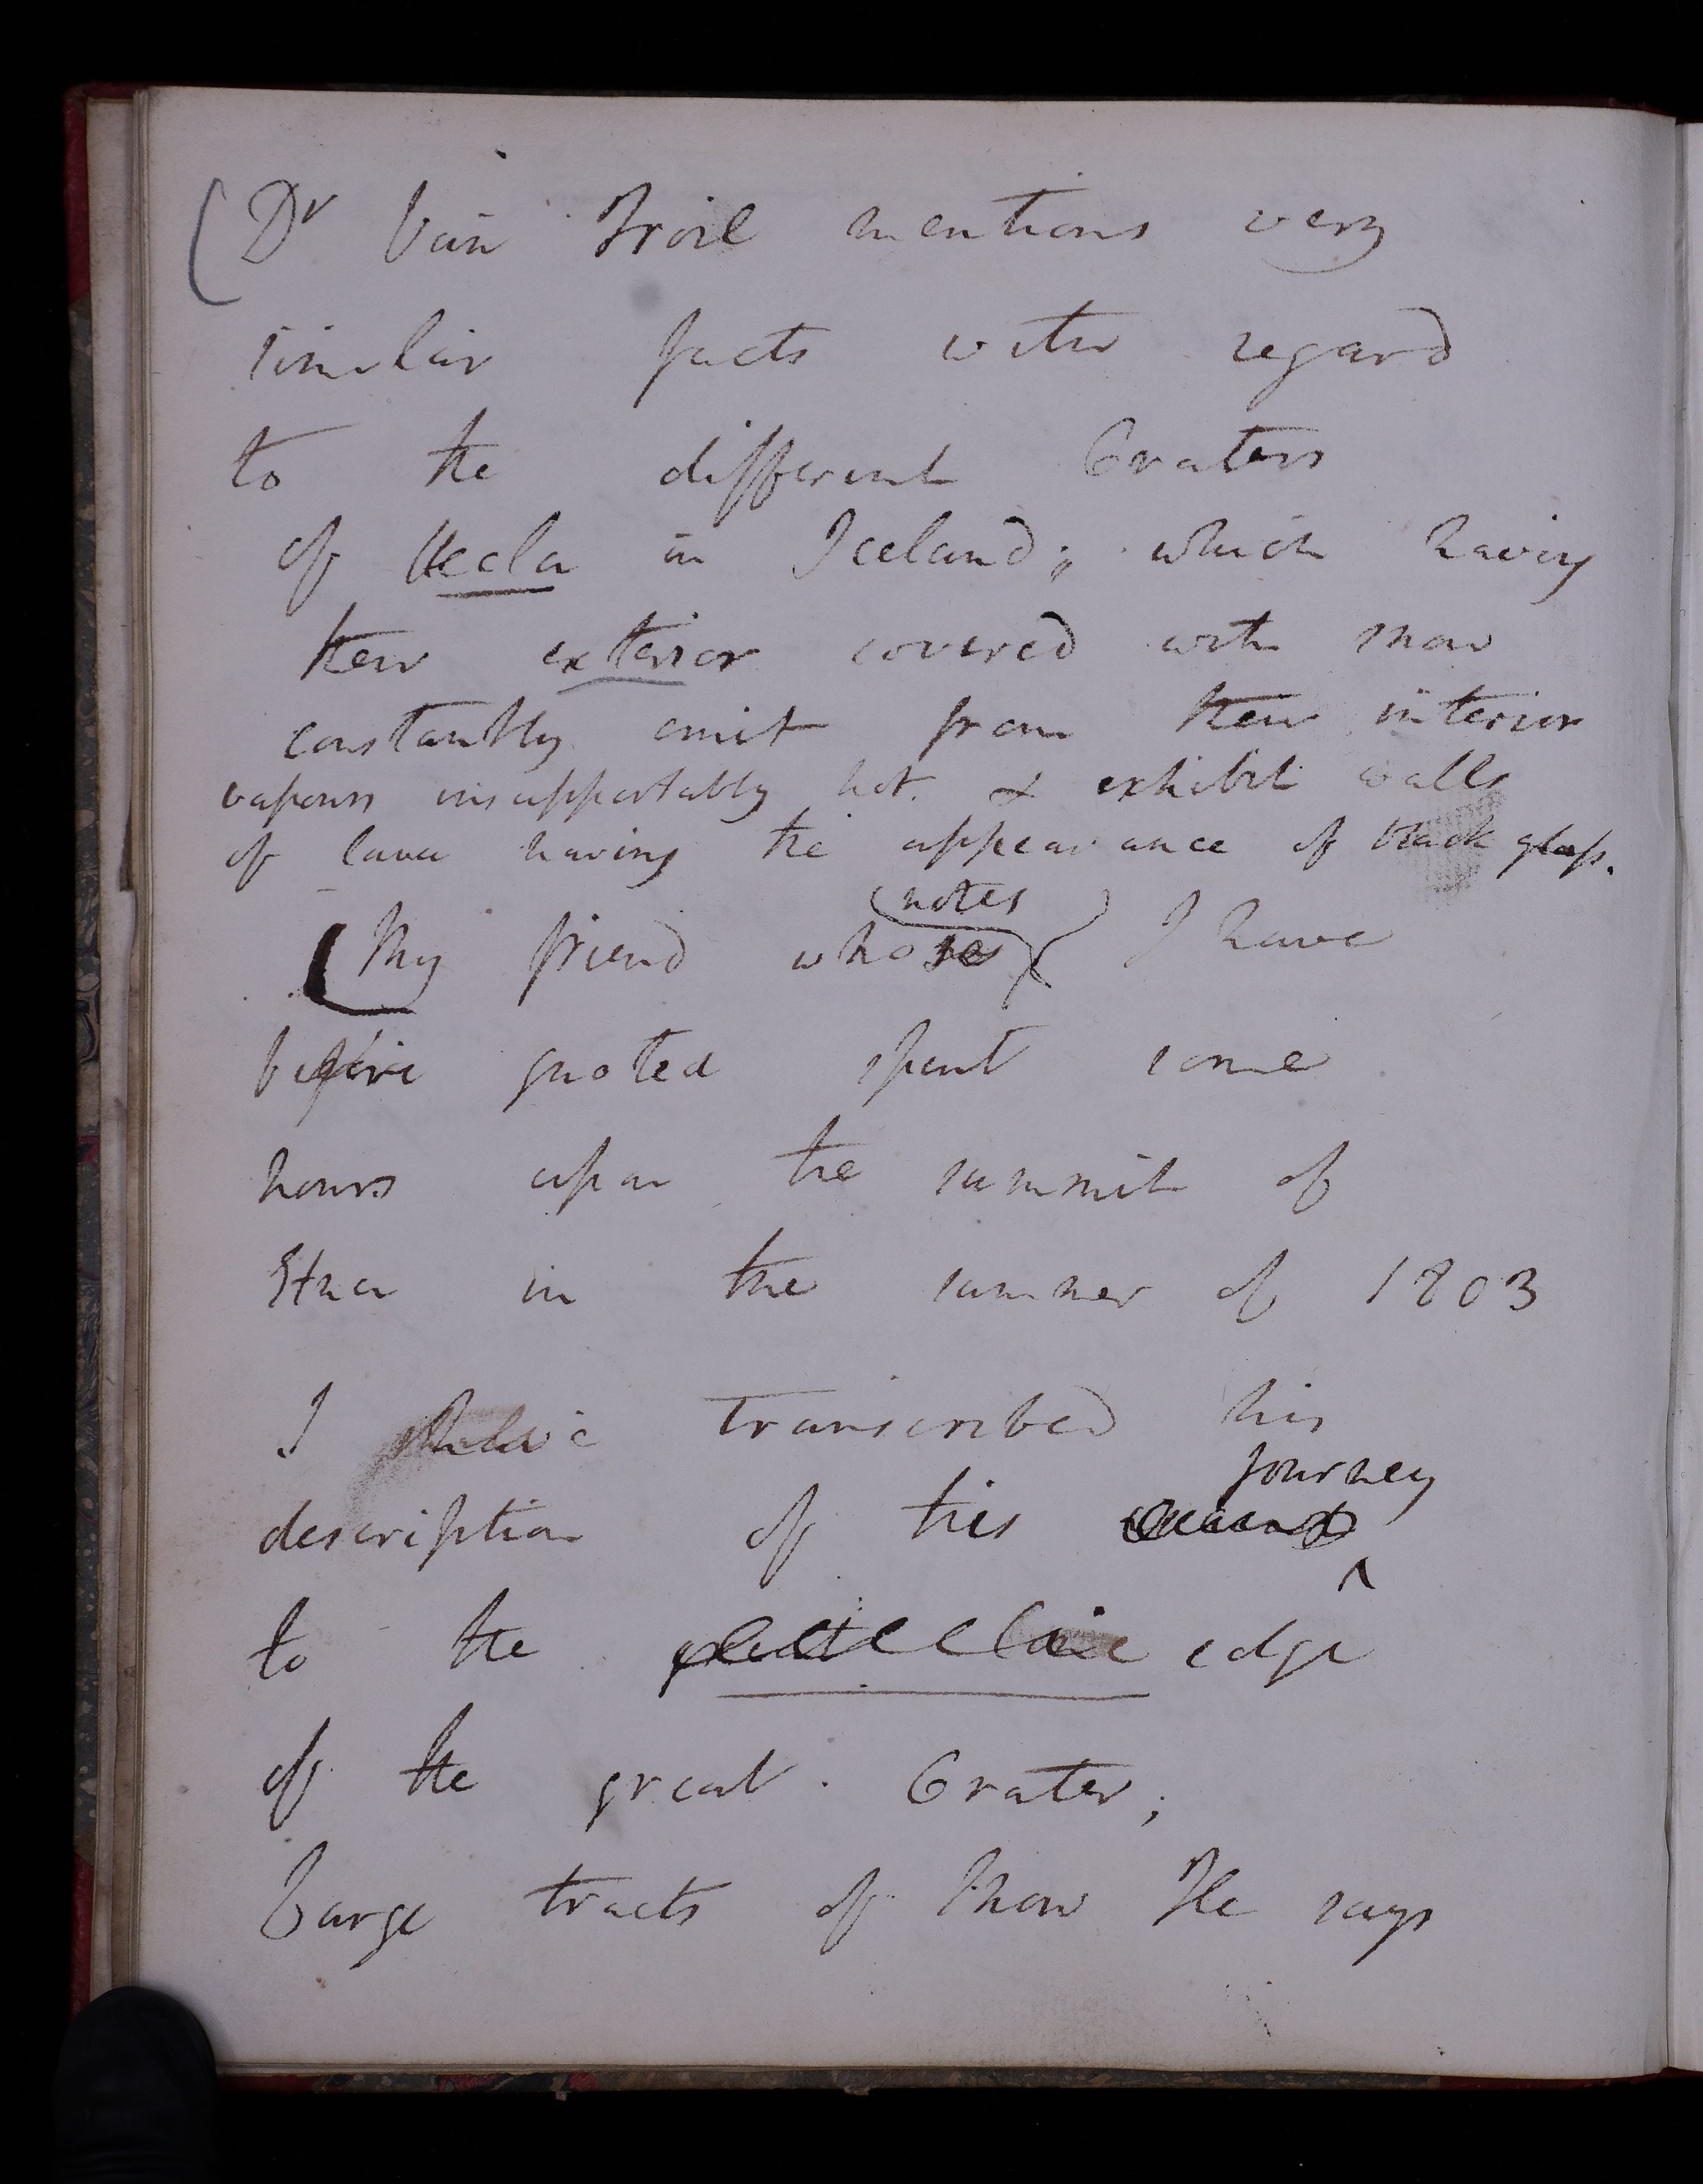 (Dr Van Troil mentions very
similar facts with regard
to the different Craters
of Hecla in Iceland; which having
their exterior covered with snow
constantly emit from their interior
vapours insupportably hot. & exhibit walls
of lava having the appearance of black glass.
(notes)
(My friend whose I have
before quoted spent some
hours upon the summit of
Etna in the summer of 1803
I have transcribed his
journey
description of his
to the edge
of the great Crater;
Large tracts of snow He says